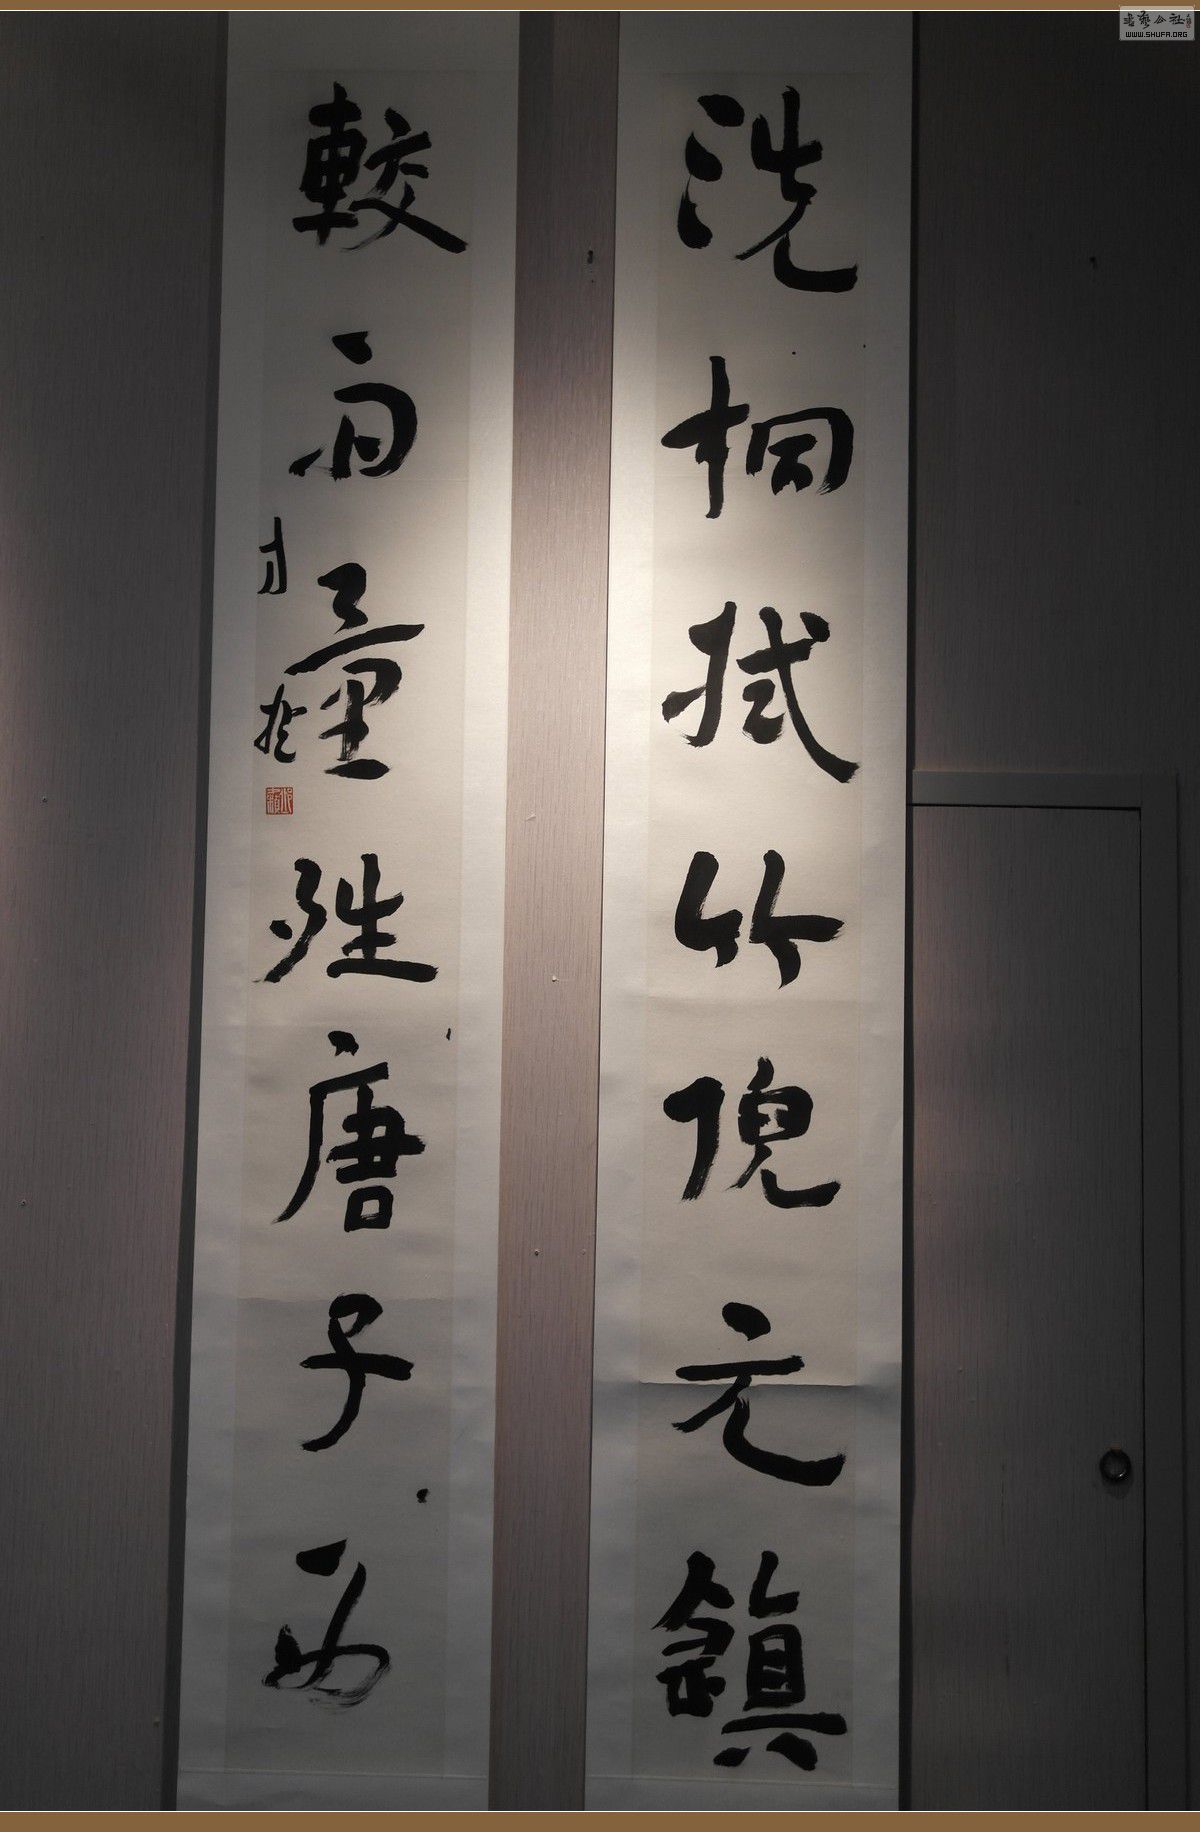 洗桐拭竹倪元鎮
較雨量晴唐子西
WWW.SHUFA.ORG